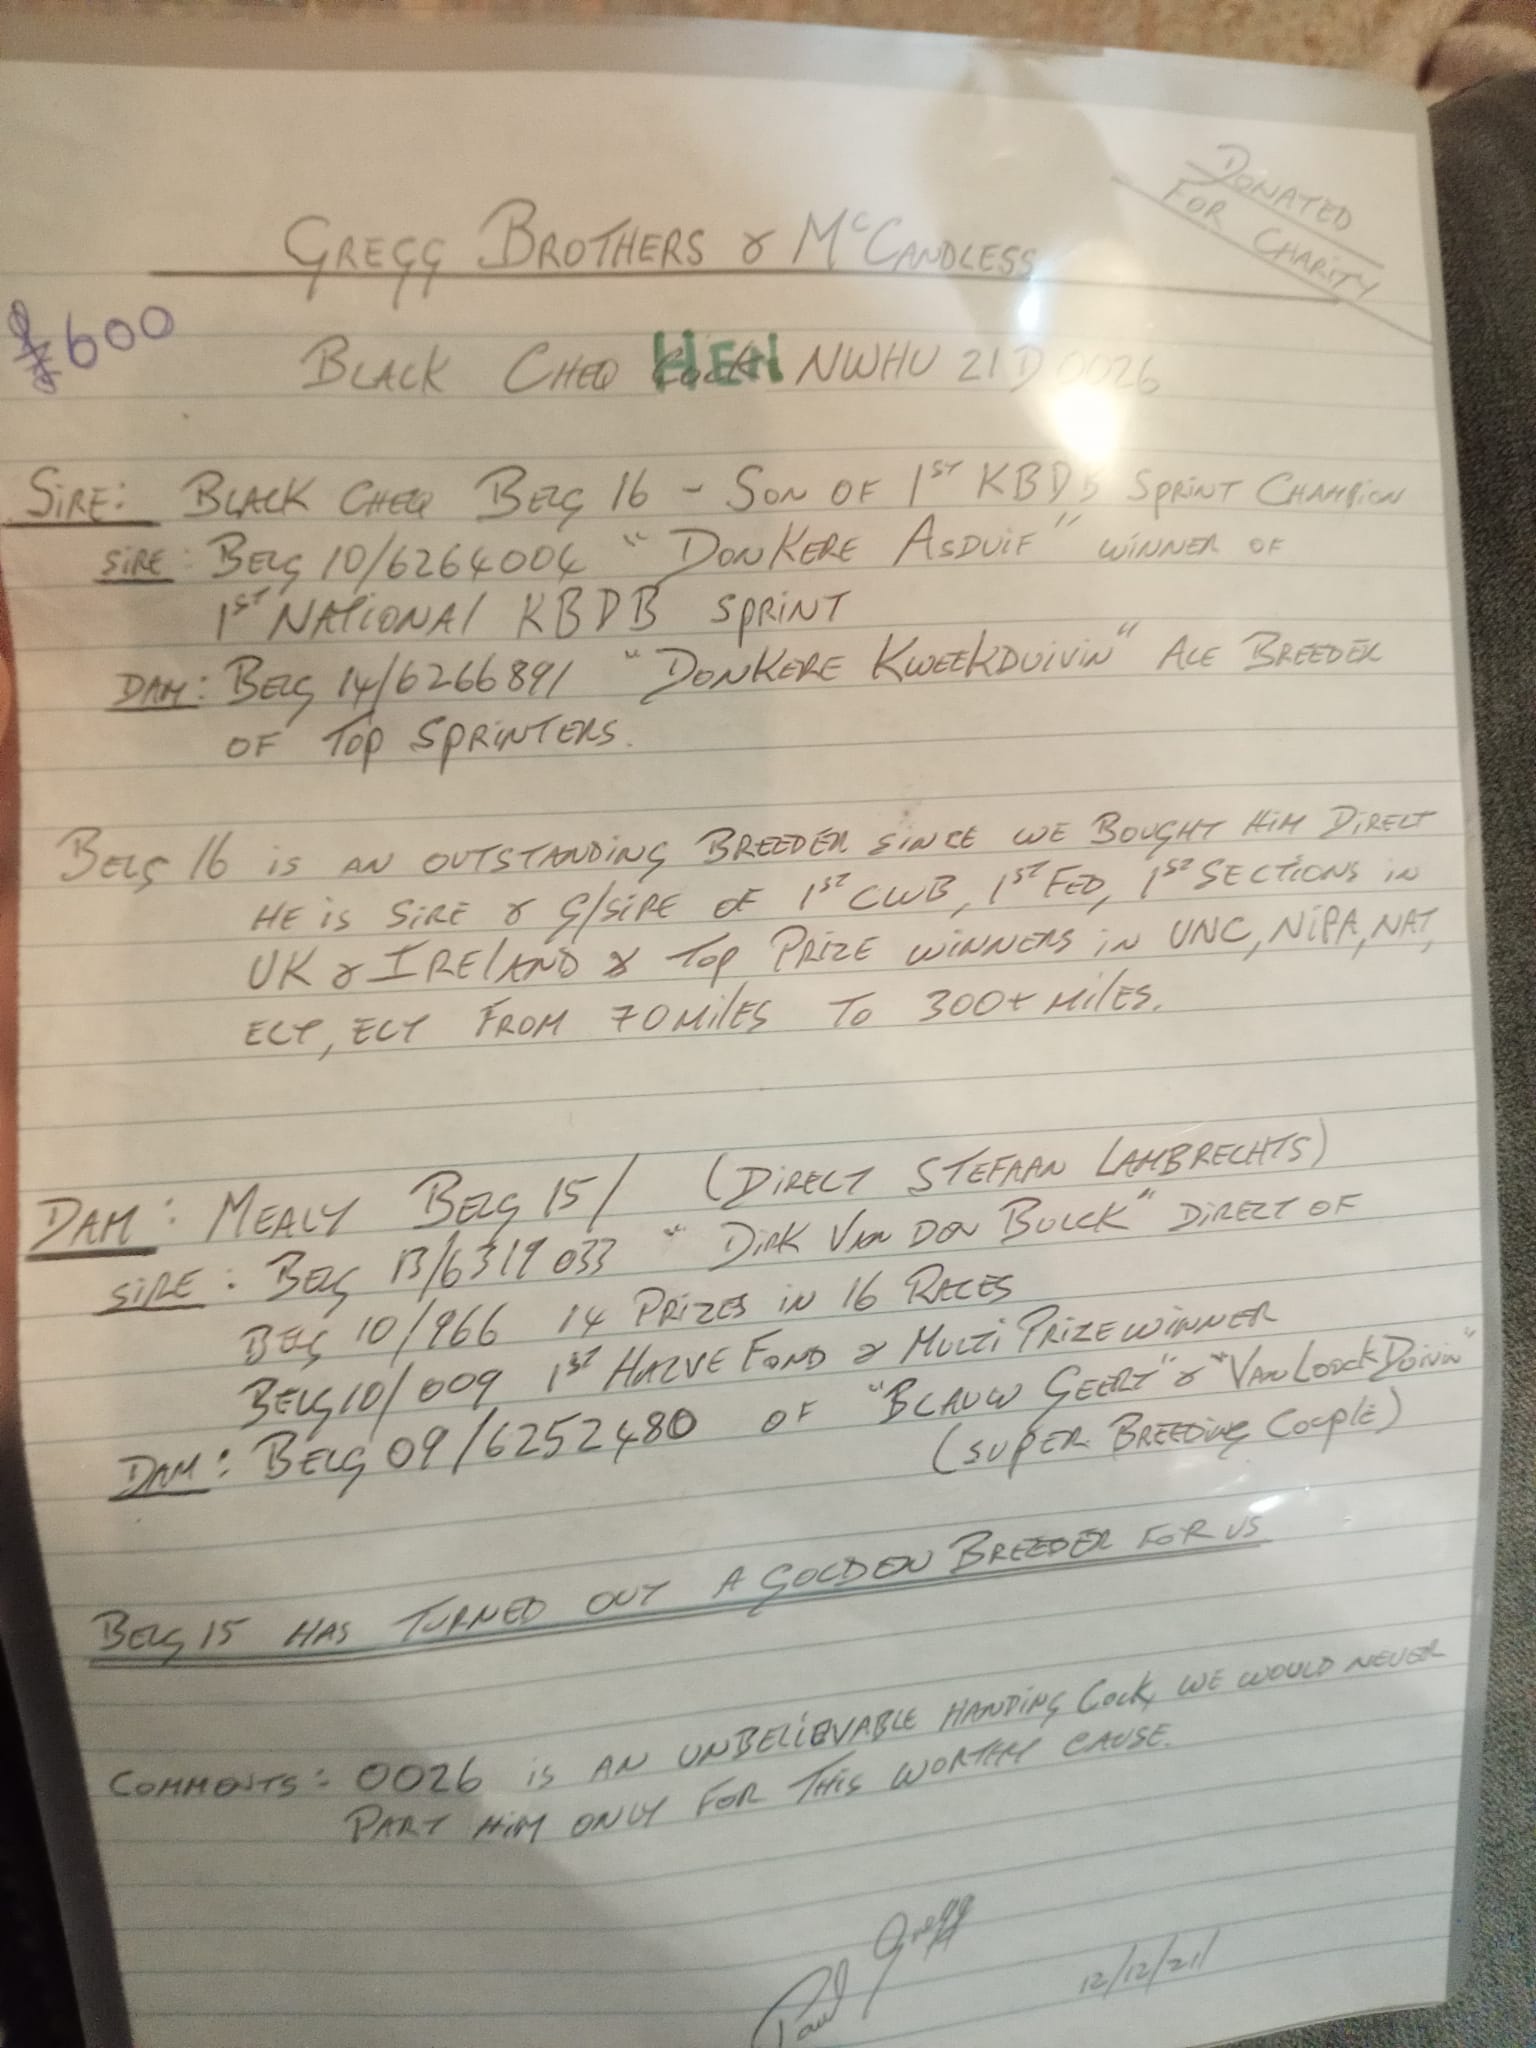 DONATED
FOR CHARITY
GREGG BROTHERS & McCANDLESS
600
BLACK CHEQ HEN NWHU 21D0026
SIRE: BLACK CHEQ BELG 16 - SON OF 1ST KBDB SPRINT CHAMPION
SIRE: BELG 10/6264004 "DONKERE ASDUIF" WINNER OF
1ST NATIONAL KBDB SPRINT
DAM: BELG 14/6266891 "DONKERE KWEEKDUIVIN" ACE BREEDER
OF TOP SPRINTERS.
BELG 16 IS AN OUTSTANDING BREEDER SINCE WE BOUGHT HIM DIRECT
HE IS SIRE & G/SIRE OF 1ST CLUB, 1ST FED, 1ST SECTIONS IN
UK & IRELAND & TOP PRIZE WINNERS IN UNC, NIPA, NAT,
ECT, ECT FROM 70 MILES TO 300+ MILES.
DAM: MEALY BELG 15/ (DIRECT STEFAAN LAMBRECHTS)
SIRE: BELG 13/6319033 "DIRK VAN DEN BULCK" DIRECT OF
BELG 10/966 14 PRIZES IN 16 RACES
BELG 10/009 1ST HALVE FOND & MULTI PRIZEWINNER
DAM: BELG 09/6252480 OF "BLAUW GEERT" & "VAN LOOCK DUIVIN"
(SUPER BREEDING COUPLE)
BELG 15 HAS TURNED OUT A GOLDEN BREEDER FOR US
COMMENTS: 0026 IS AN UNBELIEVABLE HANDING COCK, WE WOULD NEVER
PART HIM ONLY FOR THIS WORTHY CAUSE.
Paul Gregg
12/12/21